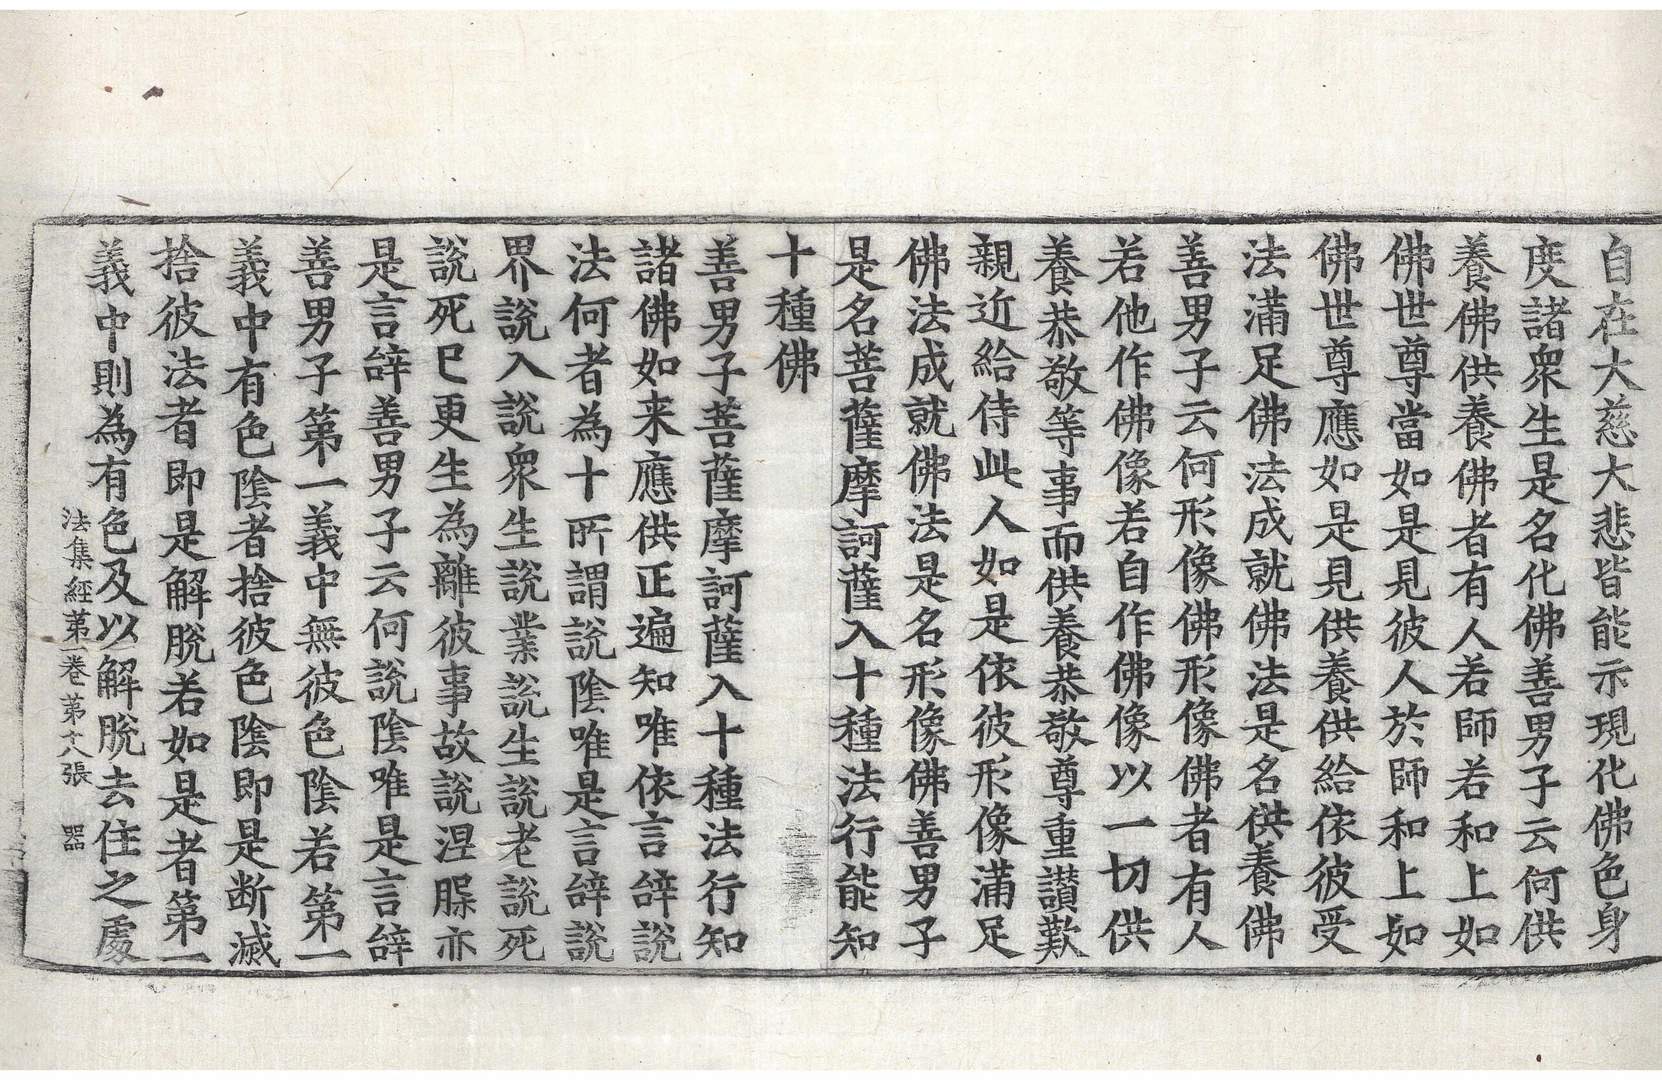 自在大慈大悲皆能示現化佛色身
度諸衆生是名化佛善男子云何供
養佛供養佛者有人若師若和上如
佛世尊當如是見彼人於師和上如
佛世尊應如是見供養供給依彼受
法滿足佛法成就佛法是名供養佛
善男子云何形像佛形像佛者有人
若他作佛像若自作佛像以一切供
養恭敬等事而供養恭敬尊重讃歎
親近給侍此人如是依彼形像滿足
佛法成就佛法是名形像佛善男子
是名菩薩摩訶薩入十種法行能知
十種佛
善男子菩薩摩訶薩入十種法行知
諸佛如来應供正遍知唯依言辝說
法何者為十所謂說陰唯是言辝說
界說入說衆生說業說生說老說死
說死已更生為離彼事故說涅槃亦
是言辝善男子云何說陰唯是言辝
善男子第一義中無彼色陰若第一
義中有色陰者捨彼色陰即是断滅
捨彼法者即是解脫若如是者第一
義中則為有色及以解脫去住之處
法集經第一卷第十八張 器